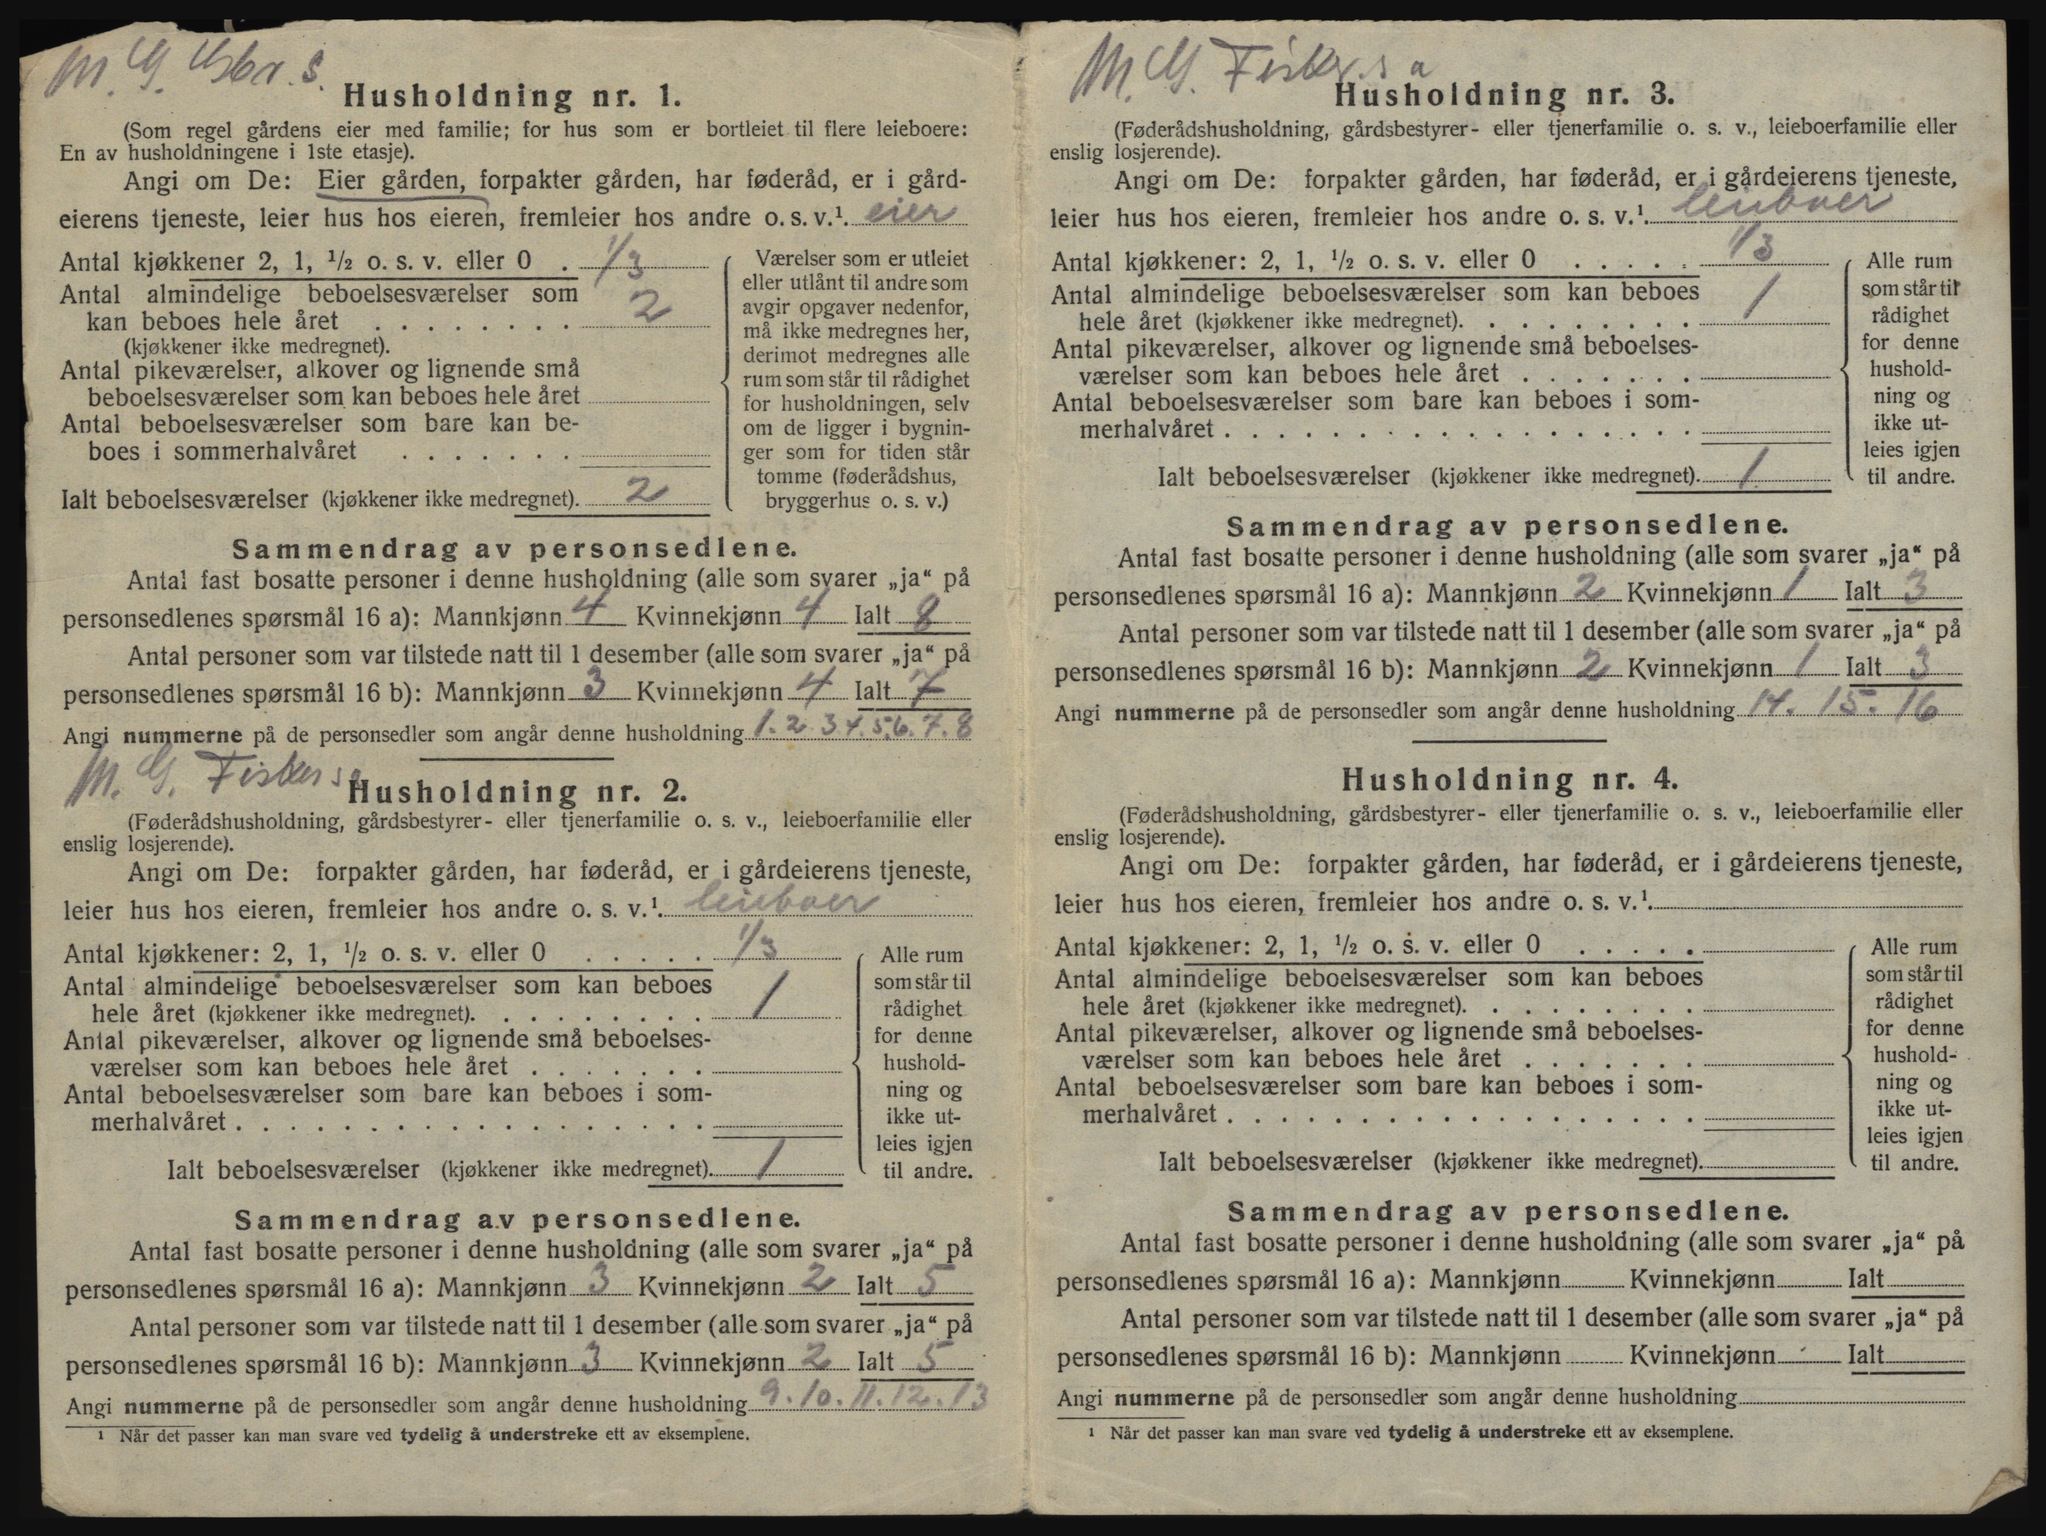 M. G. Gbr. s.
Husholdning nr. 1.
(Som regel gårdens eier med familie; for hus som er bortleiet til flere leieboere:
En av husholdningene i 1ste etasje).
Angi om De: Eier gården, forpakter gården, har føderåd, er i gård-
eierens tjeneste, leier hus hos eieren, fremleier hos andre o. s. v.¹. eier
Antal kjøkkener 2, 1, ½ o. s. v. eller 0 . 1/3
Antal almindelige beboelsesværelser som
kan beboes hele året . . . . . . . . 2
(kjøkkener ikke medregnet).
Antal pikeværelser, alkover og lignende små
beboelsesværelser som kan beboes hele året
Antal beboelsesværelser som bare kan be-
boes i sommerhalvåret . . . . . . .
Ialt beboelsesværelser (kjøkkener ikke medregnet). 2
Værelser som er utleiet
eller utlånt til andre som
avgir opgaver nedenfor,
må ikke medregnes her,
derimot medregnes alle
rum som står til rådighet
for husholdningen, selv
om de ligger i bygnin-
ger som for tiden står
tomme (føderådshus,
bryggerhus o. s. v.)
Sammendrag av personsedlene.
Antal fast bosatte personer i denne husholdning (alle som svarer „ja“ på
personsedlenes spørsmål 16 a): Mannkjønn 4 Kvinnekjønn 4 Ialt 8
Antal personer som var tilstede natt til 1 desember (alle som svarer „ja“ på
personsedlenes spørsmål 16 b): Mannkjønn 3 Kvinnekjønn 4 Ialt 7
Angi nummerne på de personsedler som angår denne husholdning 1. 2. 3. 4. 5. 6. 7. 8
M. G. Fisker s a
Husholdning nr. 2.
(Føderådshusholdning, gårdsbestyrer- eller tjenerfamilie o. s. v., leieboerfamilie eller
enslig losjerende).
Angi om De: forpakter gården, har føderåd, er i gårdeierens tjeneste,
leier hus hos eieren, fremleier hos andre o. s. v.¹. leieboer
Antal kjøkkener: 2, 1, ½ o. s. v. eller 0 . . . . . 1/3
Antal almindelige beboelsesværelser som kan beboes
hele året (kjøkkener ikke medregnet). . . . . . . . . 1
Antal pikeværelser, alkover og lignende små beboelses-
værelser som kan beboes hele året . . . . . . .
Antal beboelsesværelser som bare kan beboes i som-
merhalvåret . . . . . . . . . . . . . . . . . .
Ialt beboelsesværelser (kjøkkener ikke medregnet). 1
Alle rum
som står til
rådighet
for denne
hushold-
ning og
ikke ut-
leies igjen
til andre.
Sammendrag av personsedlene.
Antal fast bosatte personer i denne husholdning (alle som svarer „ja“ på
personsedlenes spørsmål 16 a): Mannkjønn 3 Kvinnekjønn 2 Ialt 5
Antal personer som var tilstede natt til 1 desember (alle som svarer „ja“ på
personsedlenes spørsmål 16 b): Mannkjønn 3 Kvinnekjønn 2 Ialt 5
Angi nummerne på de personsedler som angår denne husholdning 9. 10. 11. 12. 13
¹ Når det passer kan man svare ved tydelig å understreke ett av eksemplene.
M. G. Fisker. s a
Husholdning nr. 3.
(Føderådshusholdning, gårdsbestyrer- eller tjenerfamilie o. s. v., leieboerfamilie eller
enslig losjerende).
Angi om De: forpakter gården, har føderåd, er i gårdeierens tjeneste,
leier hus hos eieren, fremleier hos andre o. s. v.¹. leieboer
Antal kjøkkener: 2, 1, ½ o. s. v. eller 0 . . . . . 1/3
Antal almindelige beboelsesværelser som kan beboes
hele året (kjøkkener ikke medregnet). . . . . . . . . 1
Antal pikeværelser, alkover og lignende små beboelses-
værelser som kan beboes hele året . . . . . . .
Antal beboelsesværelser som bare kan beboes i som-
merhalvåret . . . . . . . . . . . . . . . . . .
Ialt beboelsesværelser (kjøkkener ikke medregnet). 1
Alle rum
som står til
rådighet
for denne
hushold-
ning og
ikke ut-
leies igjen
til andre.
Sammendrag av personsedlene.
Antal fast bosatte personer i denne husholdning (alle som svarer „ja“ på
personsedlenes spørsmål 16 a): Mannkjønn 2 Kvinnekjønn 1 Ialt 3
Antal personer som var tilstede natt til 1 desember (alle som svarer „ja“ på
personsedlenes spørsmål 16 b): Mannkjønn 2 Kvinnekjønn 1 Ialt 3
Angi nummerne på de personsedler som angår denne husholdning 14. 15. 16
Husholdning nr. 4.
(Føderådshusholdning, gårdsbestyrer- eller tjenerfamilie o. s. v., leieboerfamilie eller
enslig losjerende).
Angi om De: forpakter gården, har føderåd, er i gårdeierens tjeneste,
leier hus hos eieren, fremleier hos andre o. s. v.¹.
Antal kjøkkener: 2, 1, ½ o. s. v. eller 0 . . . . .
Antal almindelige beboelsesværelser som kan beboes
hele året (kjøkkener ikke medregnet). . . . . . . . .
Antal pikeværelser, alkover og lignende små beboelses-
værelser som kan beboes hele året . . . . . . .
Antal beboelsesværelser som bare kan beboes i som-
merhalvåret . . . . . . . . . . . . . . . . . .
Ialt beboelsesværelser (kjøkkener ikke medregnet).
Alle rum
som står til
rådighet
for denne
hushold-
ning og
ikke ut-
leies igjen
til andre.
Sammendrag av personsedlene.
Antal fast bosatte personer i denne husholdning (alle som svarer „ja“ på
personsedlenes spørsmål 16 a): Mannkjønn Kvinnekjønn Ialt
Antal personer som var tilstede natt til 1 desember (alle som svarer „ja“ på
personsedlenes spørsmål 16 b): Mannkjønn Kvinnekjønn Ialt
Angi nummerne på de personsedler som angår denne husholdning
¹ Når det passer kan man svare ved tydelig å understreke ett av eksemplene.